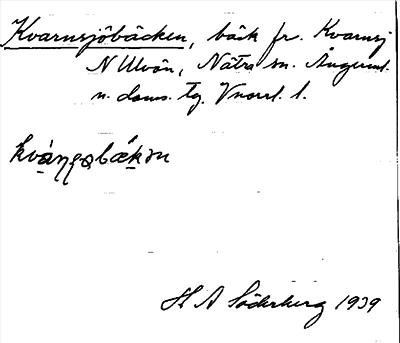 Kvarnsjöbäcken, bäck fr. Kvarnsj
N Ulvön, Nätra sn. Ångerml.
n. doms. tg. Vnorrl. l.
H A Söderberg 1939